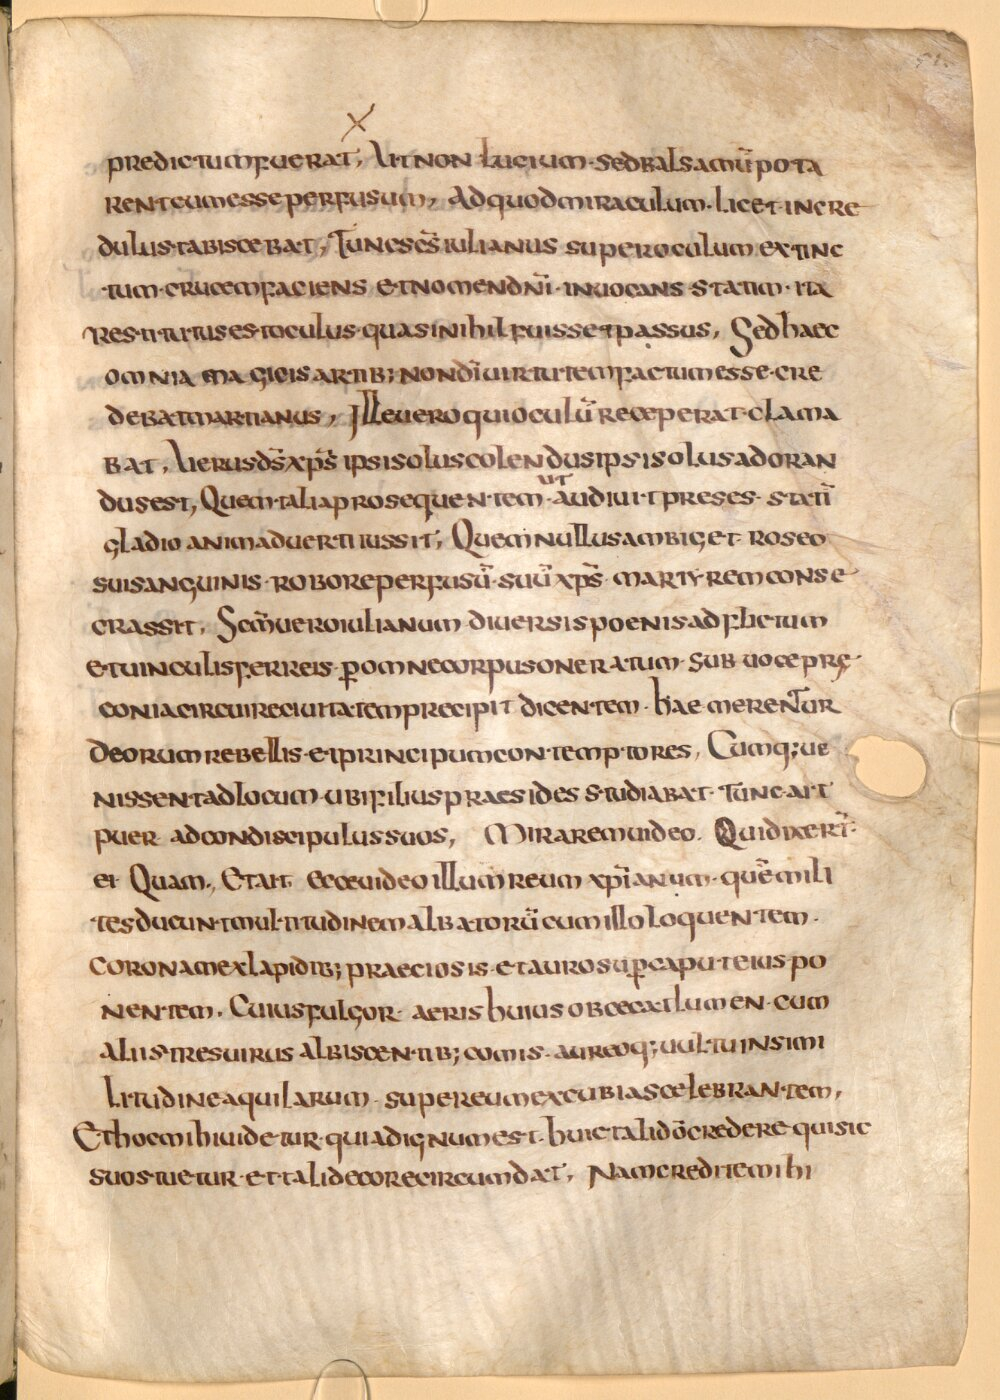 51.
predictum fuerat, Ut non lucium sed balsamū pota
rent eum esse perfusum, Ad quod miraculum licet incre
dulus tabiscebat, Tunc scs̄ iulianus super oculum extinc
tum crucem faciens et nomen dn̄i inuocans statim ita
restitutus est oculus quasi nihil fuisset passus, Sed haec
omnia magicis artib; non dī uirtutem factum esse cre
debat martianus, Ille uero qui oculū receperat clama
bat, Uerus ds̄ xp̄s ipsi solus colendus ipsi solus adoran
dus est, Quem talia prosequentem ut audiuit preses statī
gladio animaduerti iussit, Quem nullus ambiget roseo
sui sanguinis robore perfusū suū xp̄s martyrem conse
crassit, Scm̄ uero iulianum diuersis poenis adflictum
et uinculis ferreis p̄ omne corpus oneratum sub uoce prę
conia circuire ciuitatem precipit dicentem hae merentur
deorum rebellis et principum contemptores, Cumq; ue
nissent ad locum ubi filius praesides studiabat tunc ait
puer ad condiscipulus suos, Mira rem uideo. Quid dixert̄
ei Quam., Et ait ecce uideo illum reum xp̄ianum quē mili
tes ducunt multitudinem albatorū cum illo loquentem
coronam ex lapidib; praeciosis et auro sup̄ caput eius po
nentem, Cuius fulgor aeris huius obcecat lumen cum
aliis tres uirus albiscentib; comis aureoq; uultu in simi
litudine aquilarum super eum excubias celebrantem,
Et hoc mihi uidetur quia dignum est huic tali dō credere qui sic
suos tuetur et tali decore circumdat, Nam credite mihi